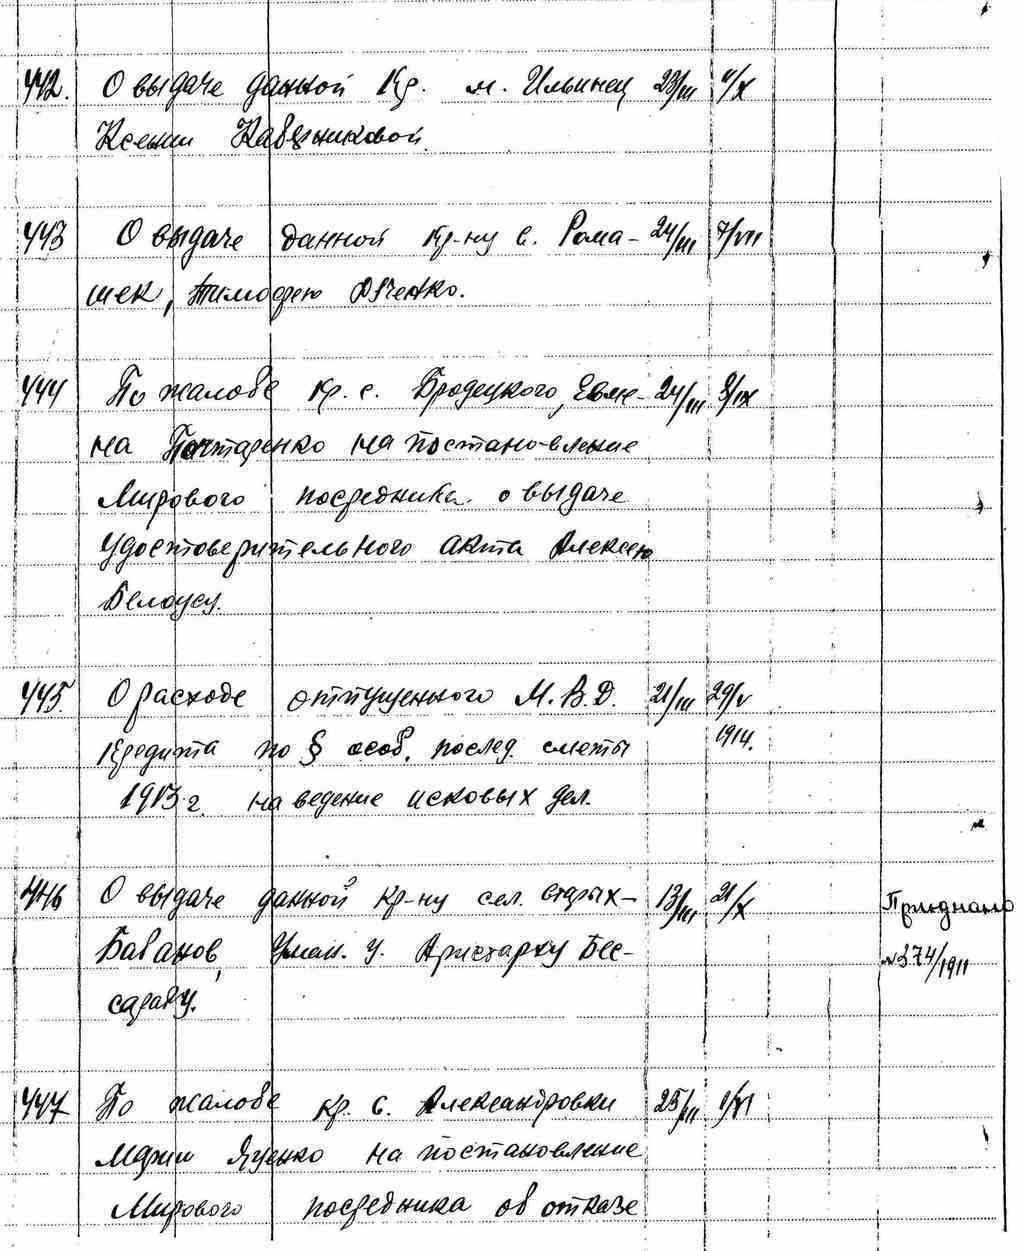 442. О выдаче данной Кр. м. Ильинец 23/III 4/X
Ксении Кавушниковой.
443 О выдаче данной кр-ну с. Рома- 24/III 7/VII
шек, Тимофею Дяченко.
444 По жалобе кр. с. Бродецкого, Евме- 24/III 9/IX
на Почтаренко на постановление
Мирового посредника о выдаче
удостоверительного акта Алексею
Белоусу.
445. О расходе отпущенного М.В.Д. 21/III 29/V
кредита по § особ. послед. сметы 1914.
1913 г. на ведение исковых дел.
446 О выдаче данной кр-ну сел. Старых- 13/III 21/X Приднано
Бабанов, Уман. у. Аристарху Бес- №374/1911
сарабу.
447 По жалобе кр. с. Александровки 25/III 1/VI
Марии Яценко на постановление
Мирового посредника об отказе